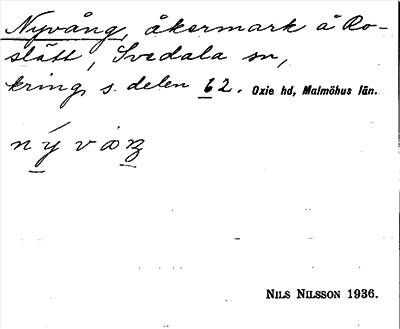 Nyvång, åkermark å Ro-
slätt, Svedala sn,
kring s. delen 62. Oxie hd, Malmöhus län.
nývåŋ
NILS NILSSON 1936.